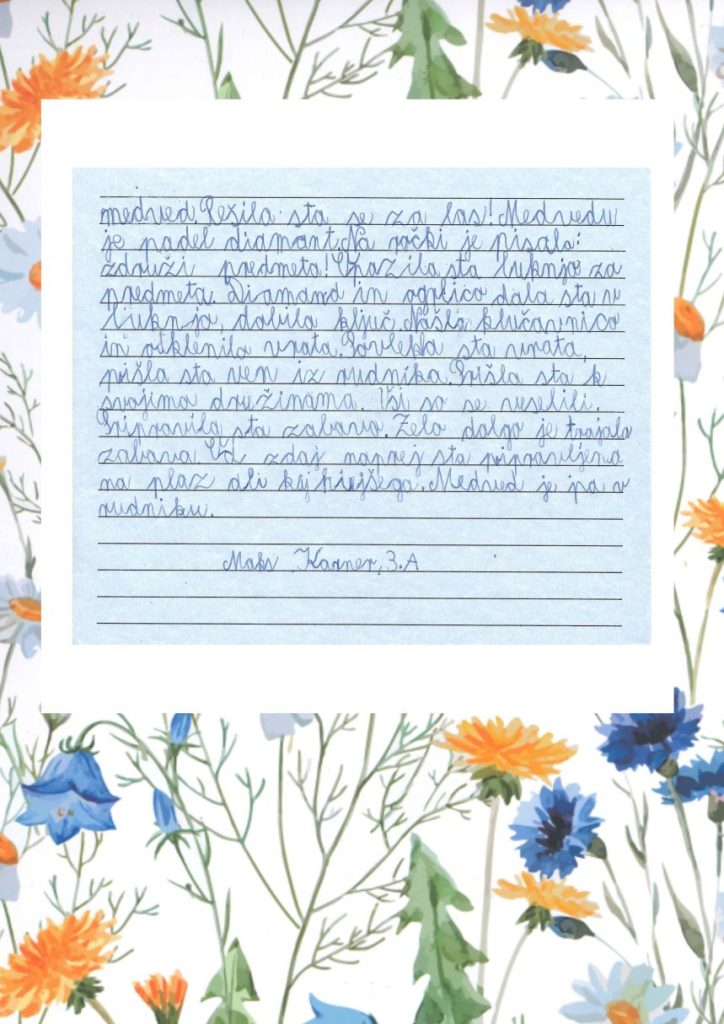 medved. Režila sta se za las! Medvedu
je padel diamant. Na ročki je pisalo:
združi predmeta! Opazila sta luknjo za
predmeta. Diamand in ogrlico dala sta v
luknjo, dobila ključ. Našla klučavnico
in otklenila vrata. Povlekla sta vrata,
prišla sta ven iz rudnika. Prišla sta k
svojima družinama. Vsi so se veselili.
Pripravila sta zabavo. Zelo dolgo je trajala
zabava. Od zdaj naprej sta pripravljena
na plaz ali kaj hujšega. Medved je pa v
rudniku.
Maks Karner, 3. A